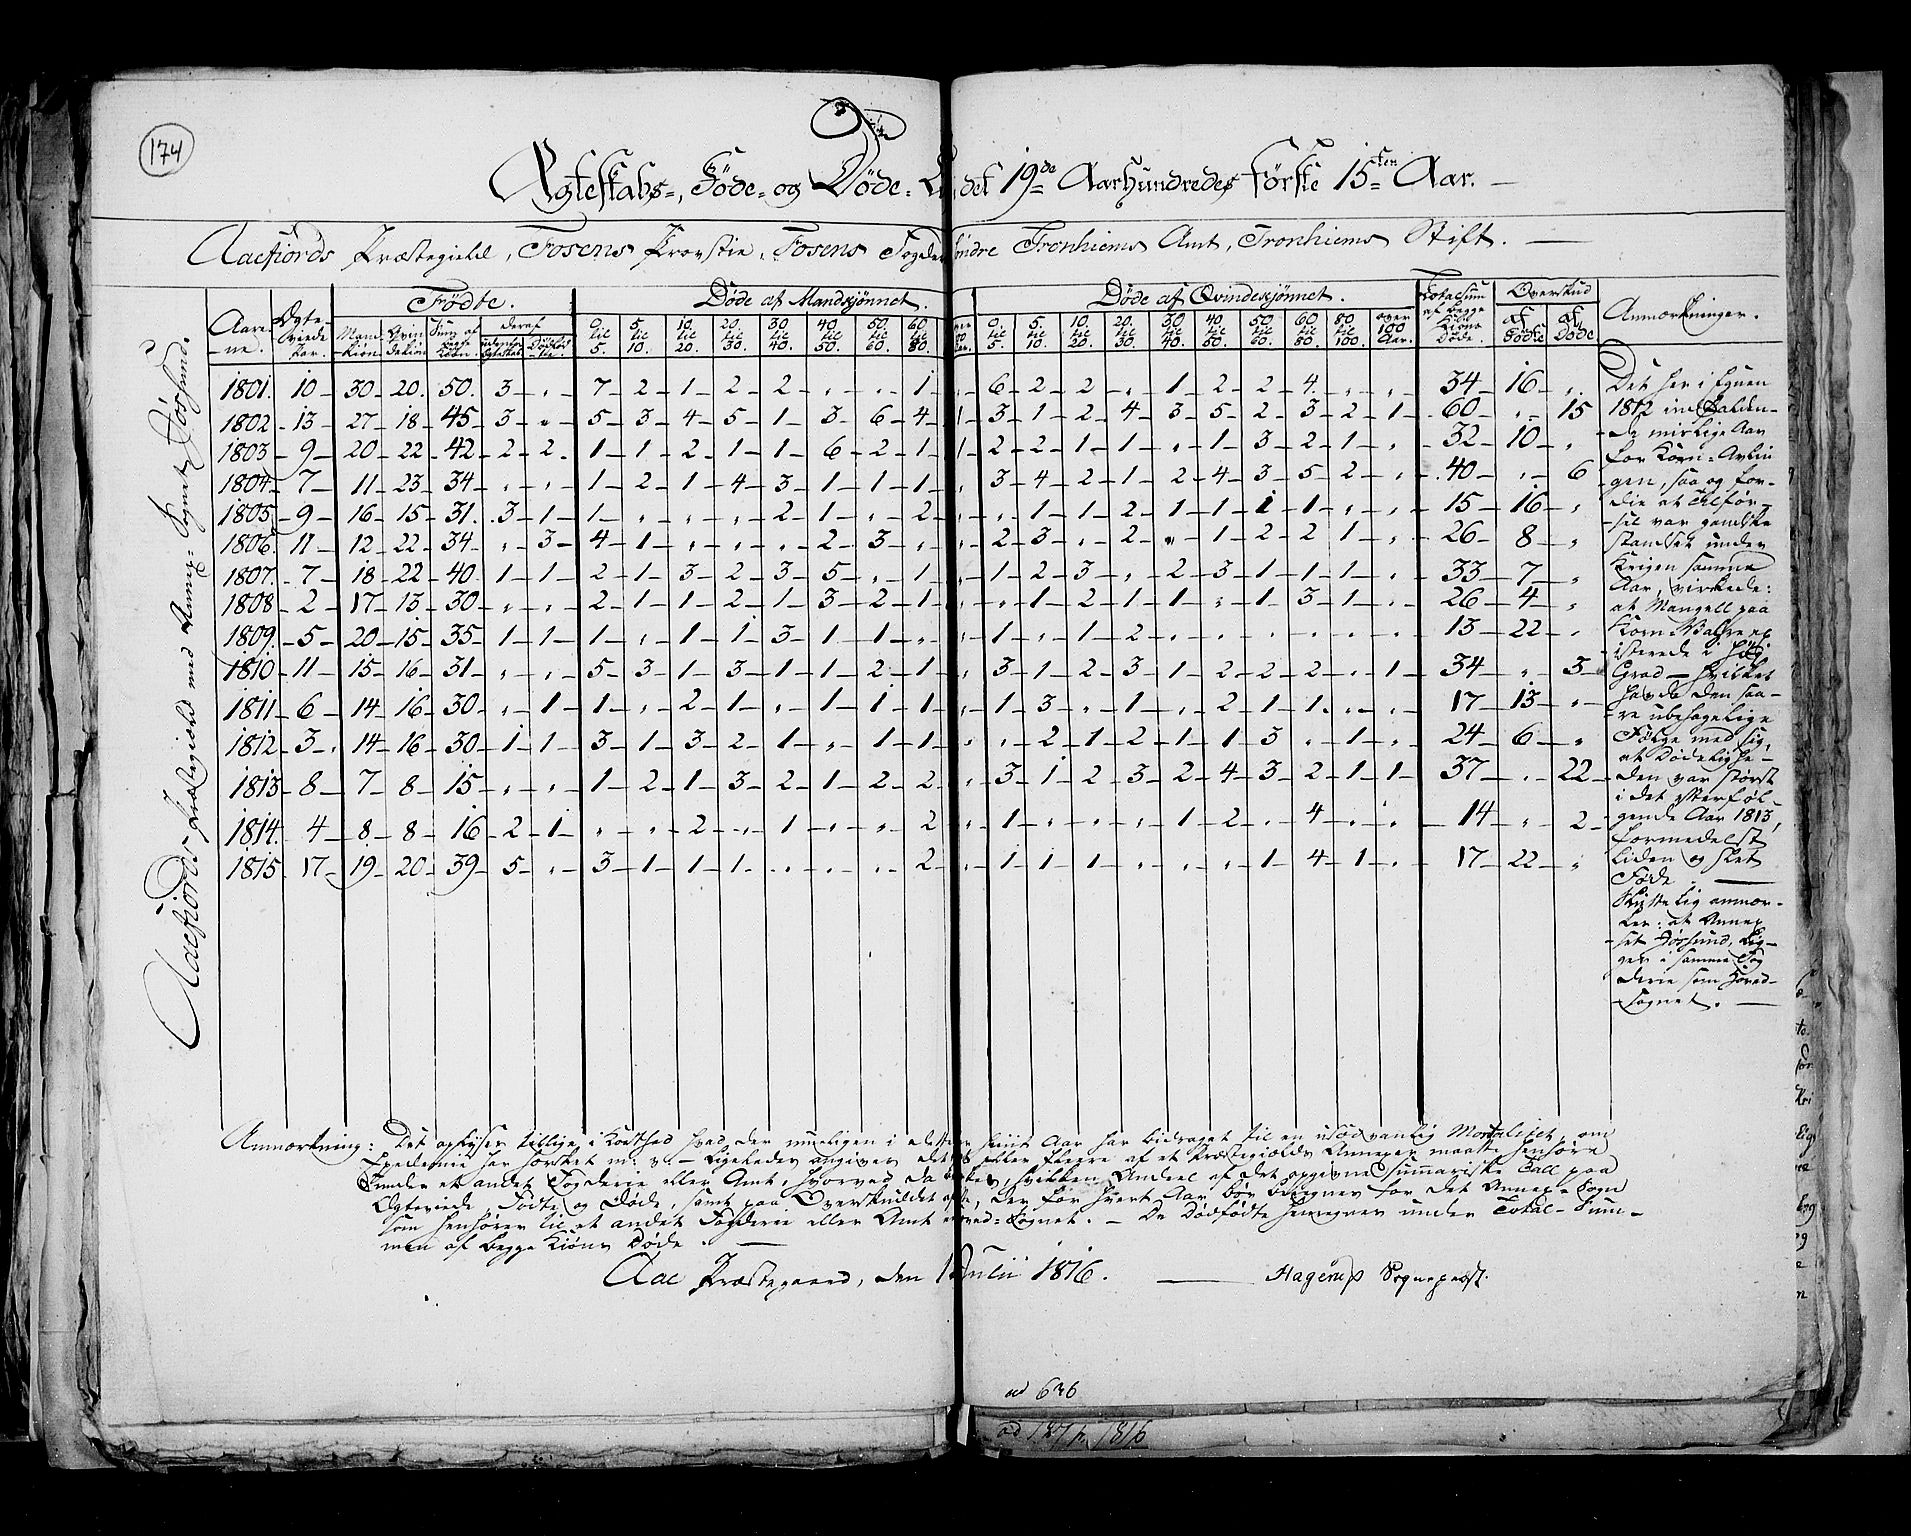 174
Ægteskabs-, Føde- og Døde- det 19de Aarhundredes første 15ten Aar. —
Aaefjords Præstegield, Fosens Provstie, Fosens Fogderi Søndre Tronhiems Amt, Tronhiems Stift. —
Aaefiords Præstegield med Annex-Sognet Jøssund.
Aarene. | Ægteviede Par. | Fødte. | Døde af Mandkjønnet. | Døde af Qvindekjønnet. | Totalsum af begge Kiøns Døde. | Overskud | Anmærkninger.
Mandkiøn | Qvindekiøn | Sum af begge Kiøn. | deraf | 0 til 5. | 5. til 10. | 10. til 20. | 20. til 30. | 30. til 40. | 40 til 50. | 50. til 60. | 60 til 80. | 0. til 5. | 5. til 10. | 10. til 20. | 20. til 30. | 30 til 40. | 40. til 50. | 50 til 60. | 60 til 80. | 80 til 100. | over 100 Aar. | af Fødte | af Døde
1801. 10 30 20 50 3 " 7 2 1 2 2 " " 1 " 6 2 2 " 1 2 2 4 " " 34 16 "
1802 13 27 18 45 3 " 5 3 4 5 1 3 6 4 1 3 1 2 4 3 5 2 3 2 1 60 " 15
1803 9 20 22 42 2 2 1 1 2 1 1 6 2 1 1 2 2 1 1 " 1 3 2 1 " 32 10 "
1804 7 11 23 34 " " 1 2 1 4 3 1 1 1 " 3 4 2 1 2 4 3 5 2 " 40 " 6
1805 9 16 15 31 3 1 1 " " " 2 1 " 2 " " 1 1 2 1 1 1 1 " " 15 16 "
1806. 11 12 22 34 " 3 4 1 " " " 2 3 " " 2 3 " 2 " 1 2 2 1 " 26 8 "
1807. 7 18 22 40 1 1 2 1 3 2 3 5 " 1 " 1 2 3 " 2 3 1 1 1 " 33 7 "
1808 2 17 13 30 " " 2 1 1 2 1 3 2 1 " " 1 2 1 1 " 1 3 1 " 26 4 "
1809. 5 20 15 35 1 1 1 " 1 1 3 1 1 " " 1 " 1 2 " " " " " " 13 22 "
1810 11 15 16 31 " " 5 3 1 3 1 1 2 1 " 3 1 2 3 1 2 2 2 " 1 34 " 3
1811 6 14 16 30 " 1 1 " 2 1 " 1 1 1 " 1 3 " 1 " 2 1 1 " " 17 13 "
1812 3 14 16 30 1 1 3 1 3 2 1 " 1 1 " " 2 1 2 1 1 3 " 1 " 24 6 "
1813 8 7 8 15 " " 1 2 1 3 2 1 2 2 " 3 1 2 3 2 4 3 2 1 1 37 " 22
1814. 4 8 8 16 2 1 " " 2 " 1 " " 2 " 1 " " " 1 2 " 4 " " 14 " 2
1815 17 19 20 39 5 " 3 1 1 1 " " " 2 " 1 1 1 " " " 1 4 1 " 17 22 "
Det her i Egnen
1812 indfaldende
mislige Aar
for Korn-Avlin
gen, saa og for-
die at Tilfør-
sel var gandske
standset under
Krigen samme
Aar, virkede:
at Mangell paa
Korn-Vahre ex
isterede i høj
Grad — hvilket
havde den saa-
re ubehagelige
Følge med sig,
at Dødelighe-
den var størst
i det efterføl-
gende Aar 1813,
formedelst
liden og slet
Føde. —
Skyttelig anmær-
kes: at Annex
set Jøssund, lig-
ger i samme Fog
derie som Hoved-
sognet. —
Anmærkning: Det oplyses tillige i Korthed hvad der mueligen i et eller hiint Aar har bidraget til en usædvanlig Mortalitet, om
Epedemie har hersket m: v. — Ligeledes angives, et eller fleere af et Præstegields Annexer maatte henhøre
under et andet Fogderie eller Amt, hvorved da , hvilken Andeel af det opgivne summariske Tall paa
Ægteviede, Fødte og Døde, samt paa Overskuddet , der for hvert Aar bør beregnes for det Annex-Sogn
som henhører til et andet Fogderie eller Amt -Sognet. — De Dødfødte henregnes under Total-Sum-
men af begge Kiøns Døde. —
Aae Præstegaard, den Julii 1816. — Hagerup Sognepræst.
ad 636
ad 1816